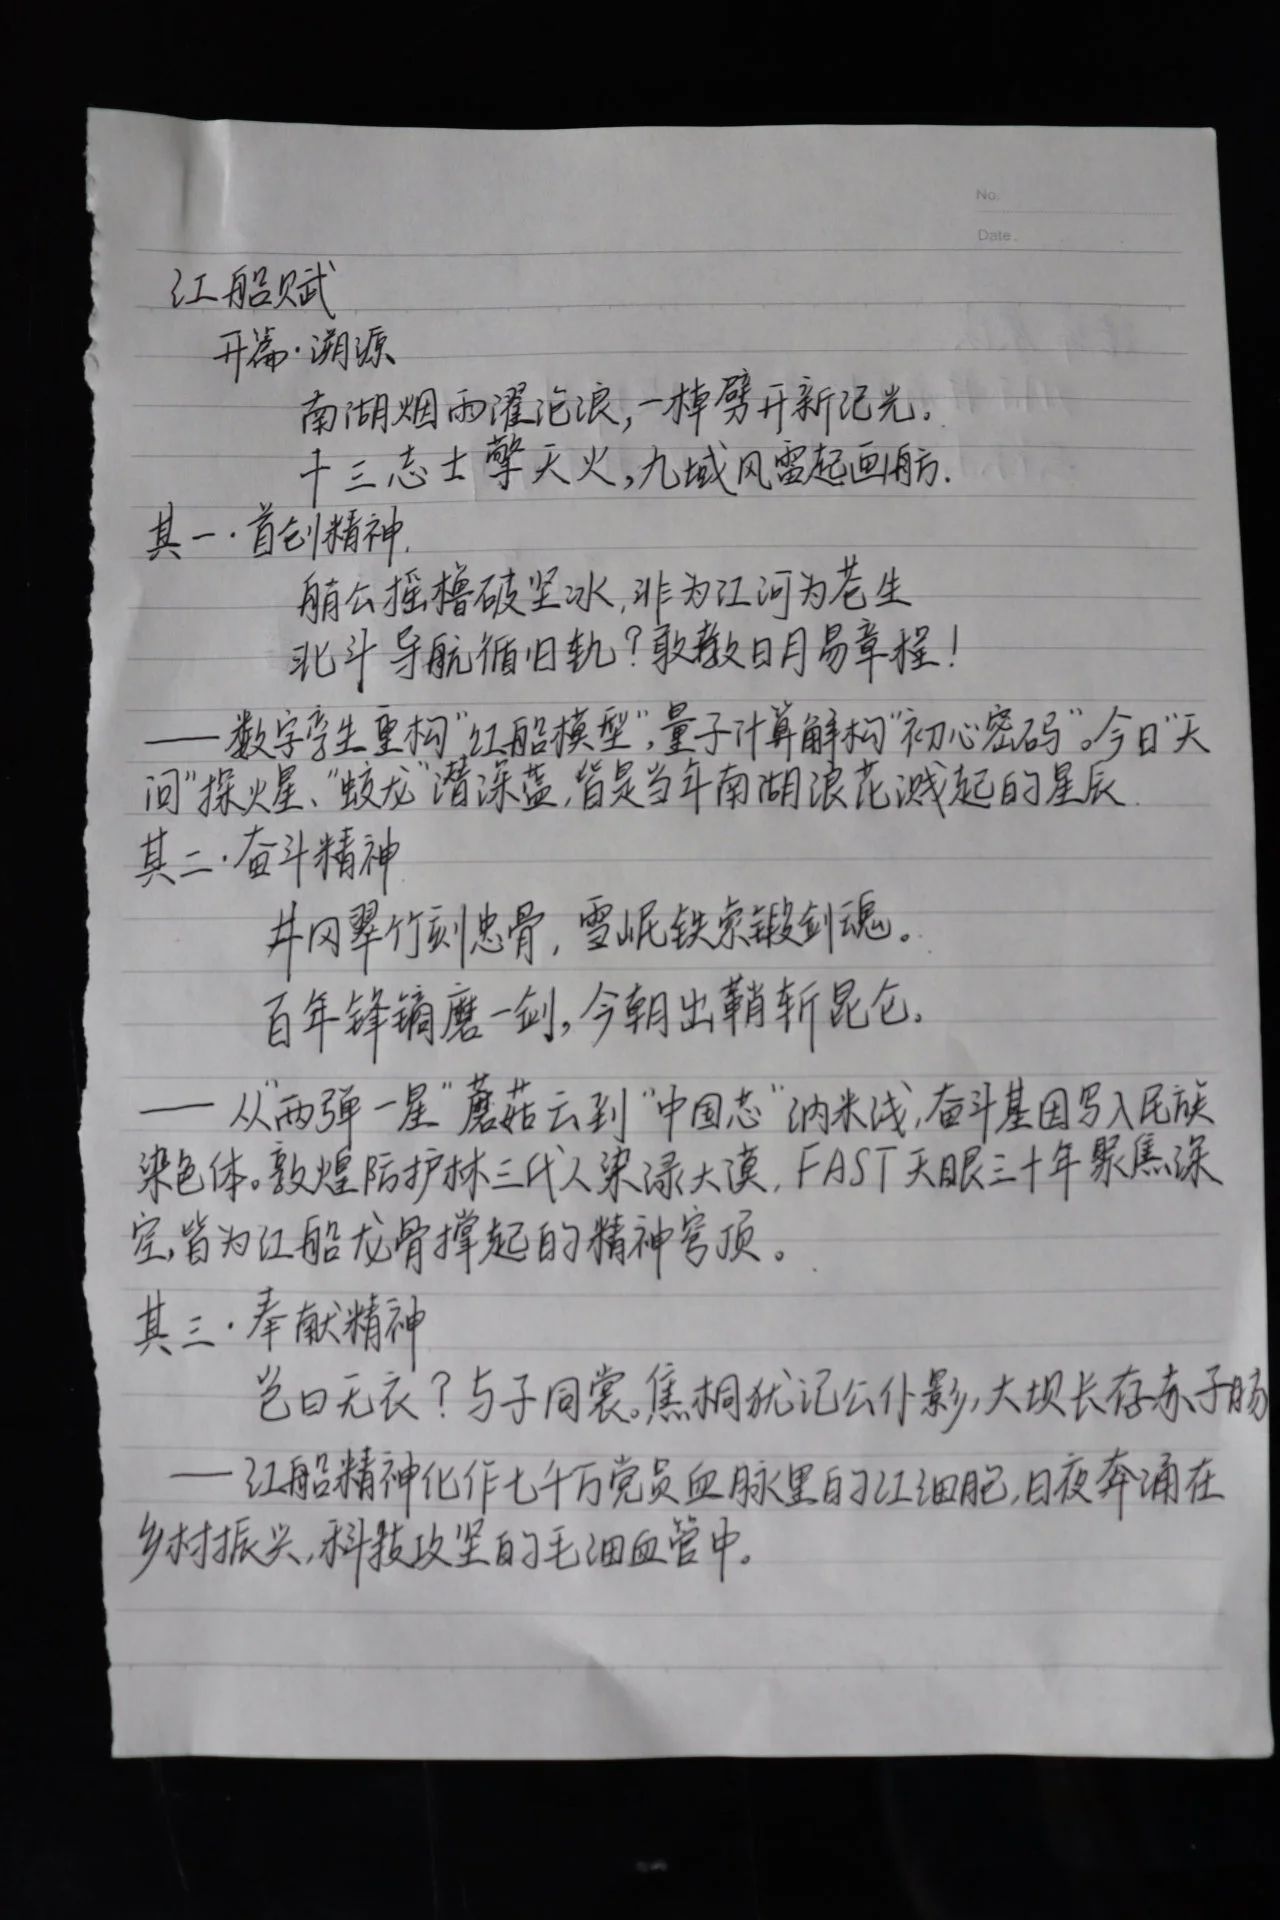 No.
Date.
江船赋
开篇·溯源
南湖烟雨濯沧浪,一棹劈开新纪光。
十三志士擎天火,九域风雷起画舫.
其一·首创精神.
艄公摇橹破坚冰,非为江河为苍生
北斗导航循旧轨?敢教日月易章程!
——数字孪生重构"红船模型",量子计算解构"初心密码"。今日"天
问"探火星、"蛟龙"潜深蓝,皆是当年南湖浪花溅起的星辰.
其二·奋斗精神
井冈翠竹刻忠骨,雪岷铁索锻剑魂。
百年锋镝磨一剑,今朝出鞘斩昆仑。
——从"两弹一星"蘑菇云到"中国芯"纳米浅,奋斗基因写入民族
染色体。敦煌防护林三代人染渌大漠,FAST天眼三十年聚焦深
空,皆为江船龙骨撑起的精神穹顶。
其三·奉献精神
岂曰无衣?与子同裳。焦桐犹记公仆影,大坝长存赤子肠
——江船精神化作七千万党员血脉里的江细胞,日夜奔涌在
乡村振兴,科技攻坚的毛细血管中。